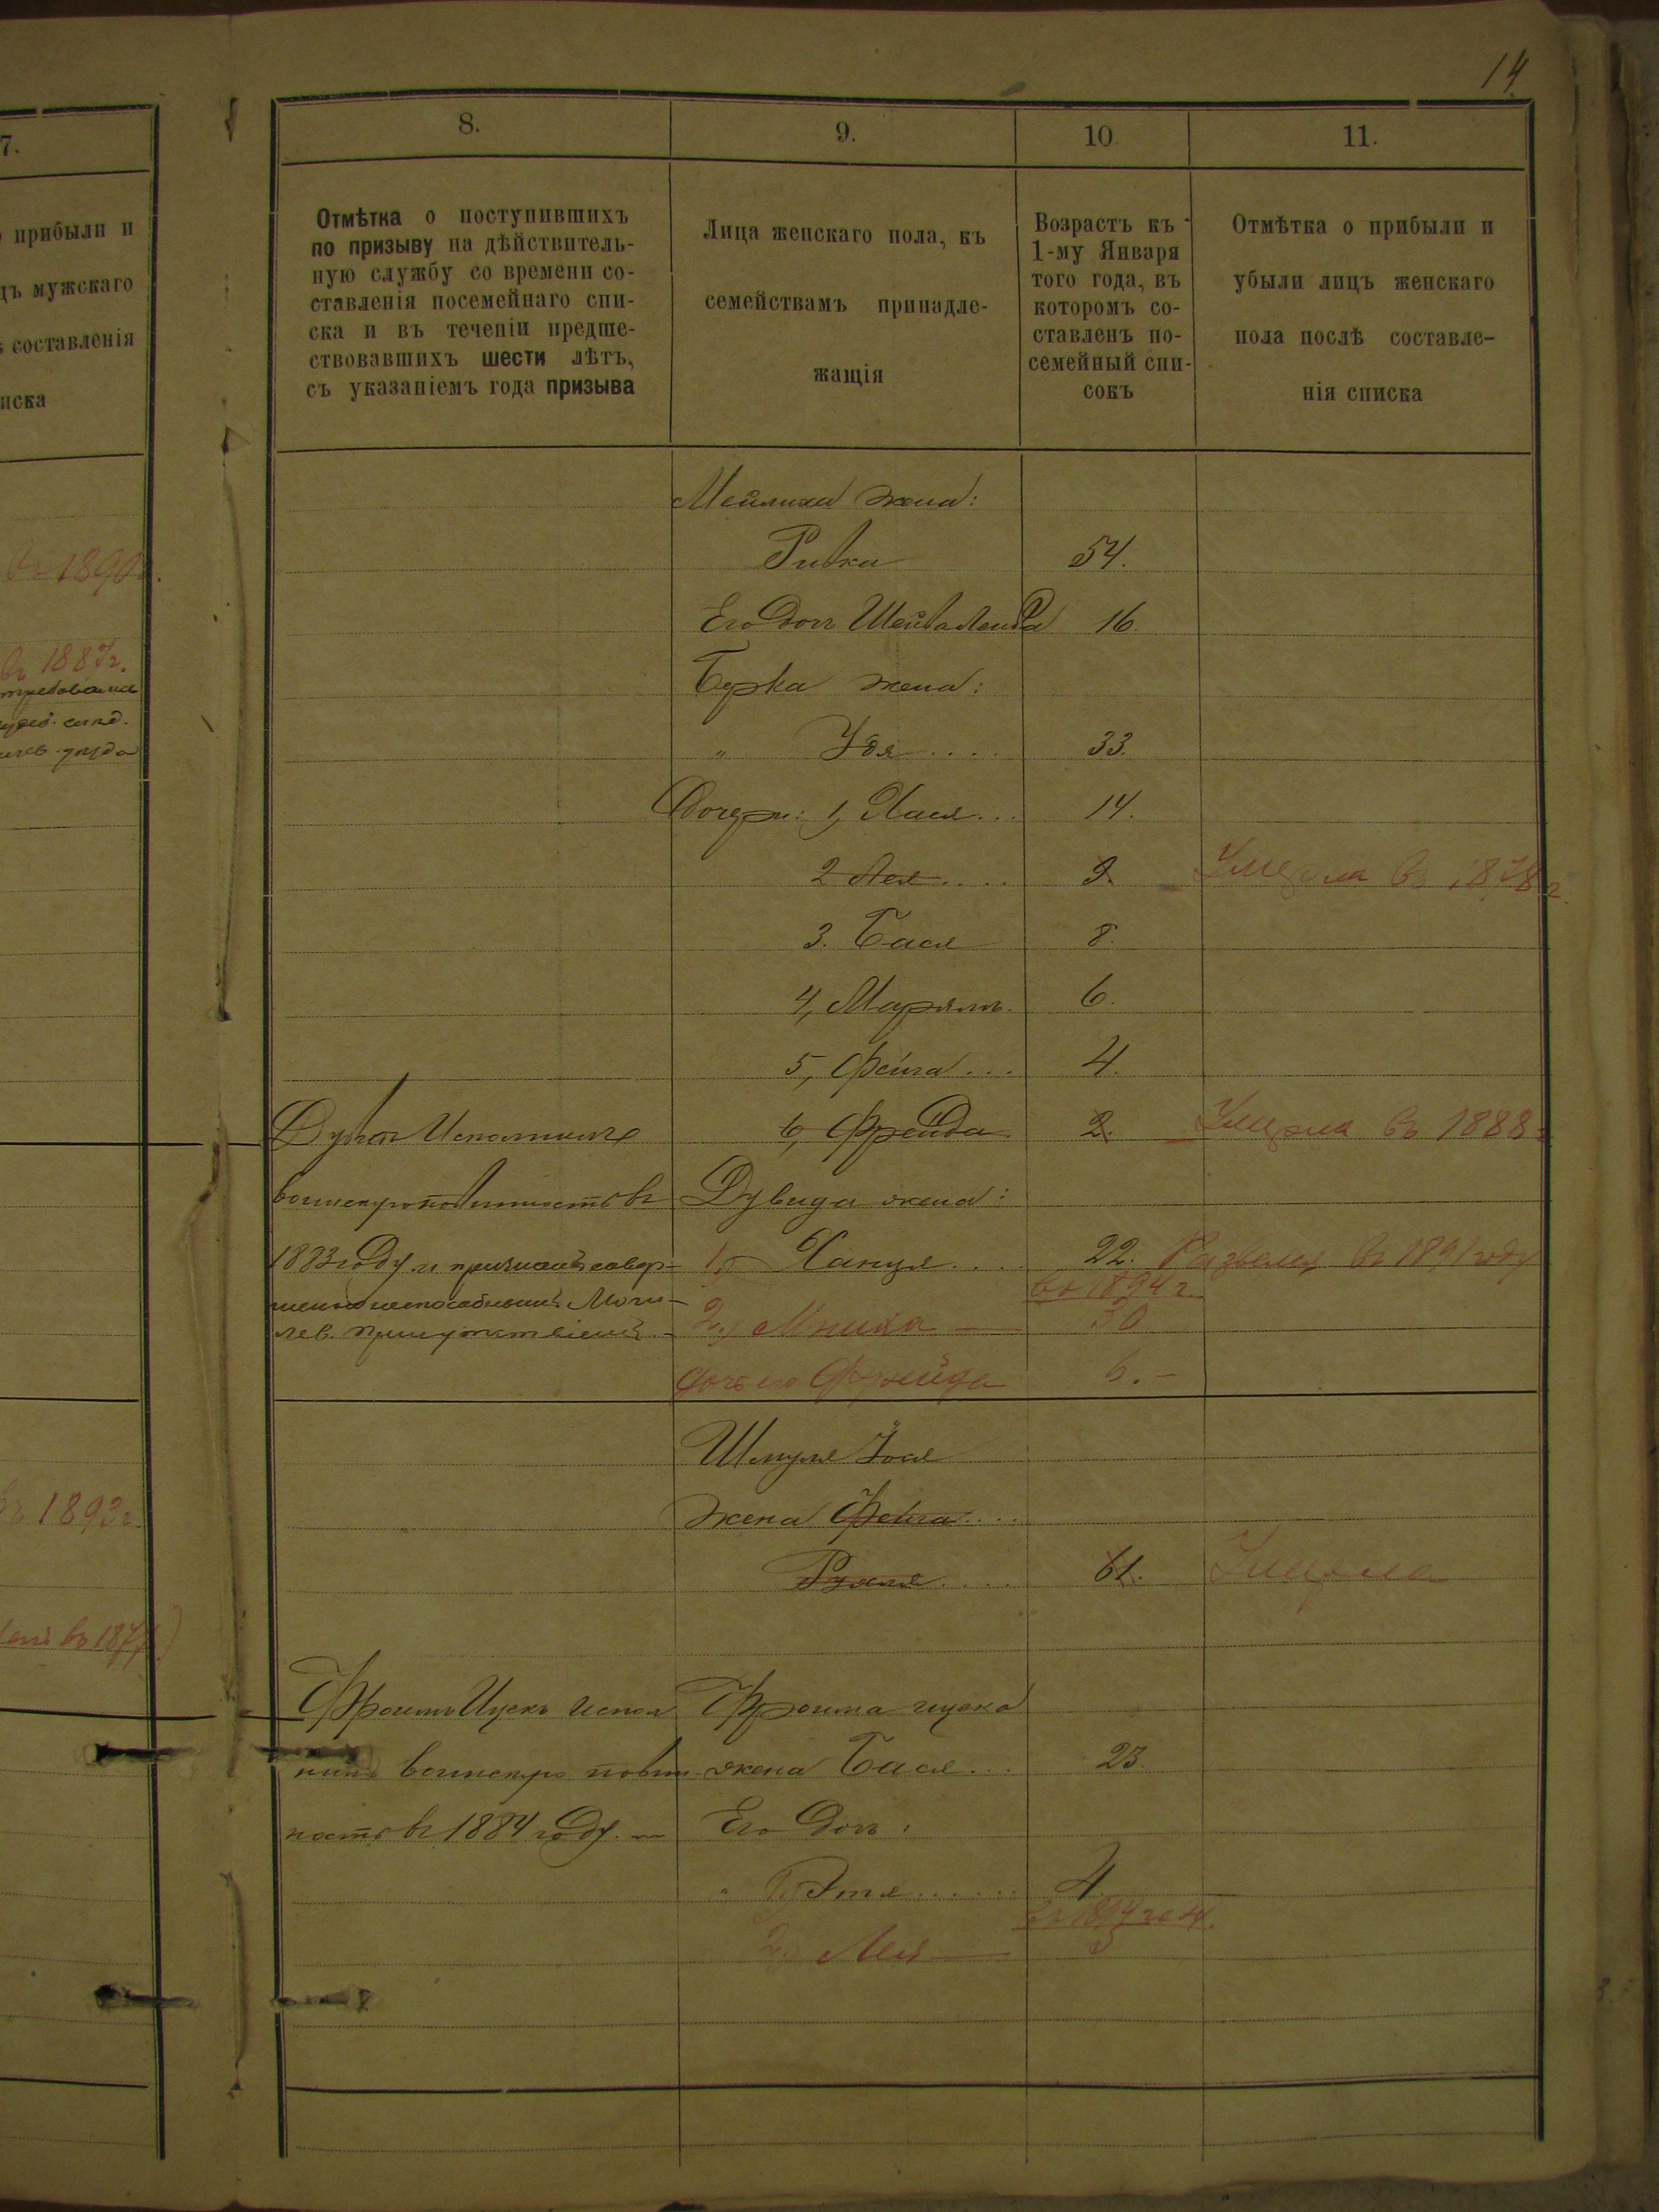 14
7.
прибыли и
мужскаго
составленія
иска
1890
въ 1887г.
требована
въ 1893г.
въ 1877
8.
Отмѣтка о поступившихъ
по призыву на дѣйствитель-
ную службу со времени со-
ставленія посемейнаго спи-
ска и въ теченіи предше-
ствовавшихъ шести лѣтъ,
съ указаніемъ года призыва
9.
Лица женскаго пола, къ
семействамъ принадле-
жащія
10
Возрастъ къ
1-му Января
того года, въ
которомъ со-
ставленъ по-
семейный спи-
сокъ
11.
Отмѣтка о прибыли и
убыли лицъ женскаго
пола послѣ составле-
нія списка
Мейлиха жена:
Ривка 54.
Его доч 16.
Берка жена:
" Удя .... 33.
Дочери: 1, Хася... 14.
2 Лея .... 9. Умерла въ 1878г.
3. Бася 8.
4, Марямъ. 6.
5, Фейга ... 4.
6, Фрейда 2. Умерла въ 1888
Исполнилъ
воинскую повинность въ
1883 году и признанъ совер-
шенно неспособнымъ Моги-
лев. присутствіемъ
Дувида жена:
1, Ханця .... 22. въ 1891 году
въ 1894 г.
2, 30
дочь его Фрейда 6. -
Шмуля Іося
жена Фейга ....
.... 61. Умерла
Фроимъ Ицекъ испол
нилъ воинскую повин-
ность въ 1884 году. —
Фроима ицека
жена Бася ... 23.
Его доч:
" 1, Этя ...... 4.
въ 1894 году.
2. Лея — 5